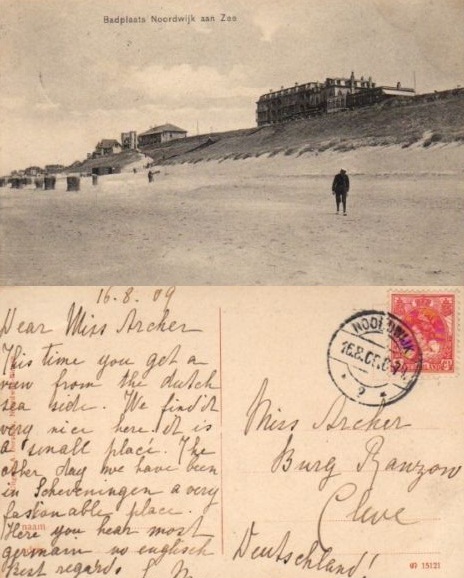 Badplaats Noordwijk aan Zee
16.8.09
Dear Miss Archer
This time you get a
view from the dutch
sea side. We find't
very nice here. It is
a small place. The
other day we have been
in Scheveningen a very
fasionable place.
Here you hear most
germain no englisch
Best regards
naam
NOORDWIJK
16.8.0
Miss Archer
Burg Ranzow
Cleve
Deutschland!
09 15121